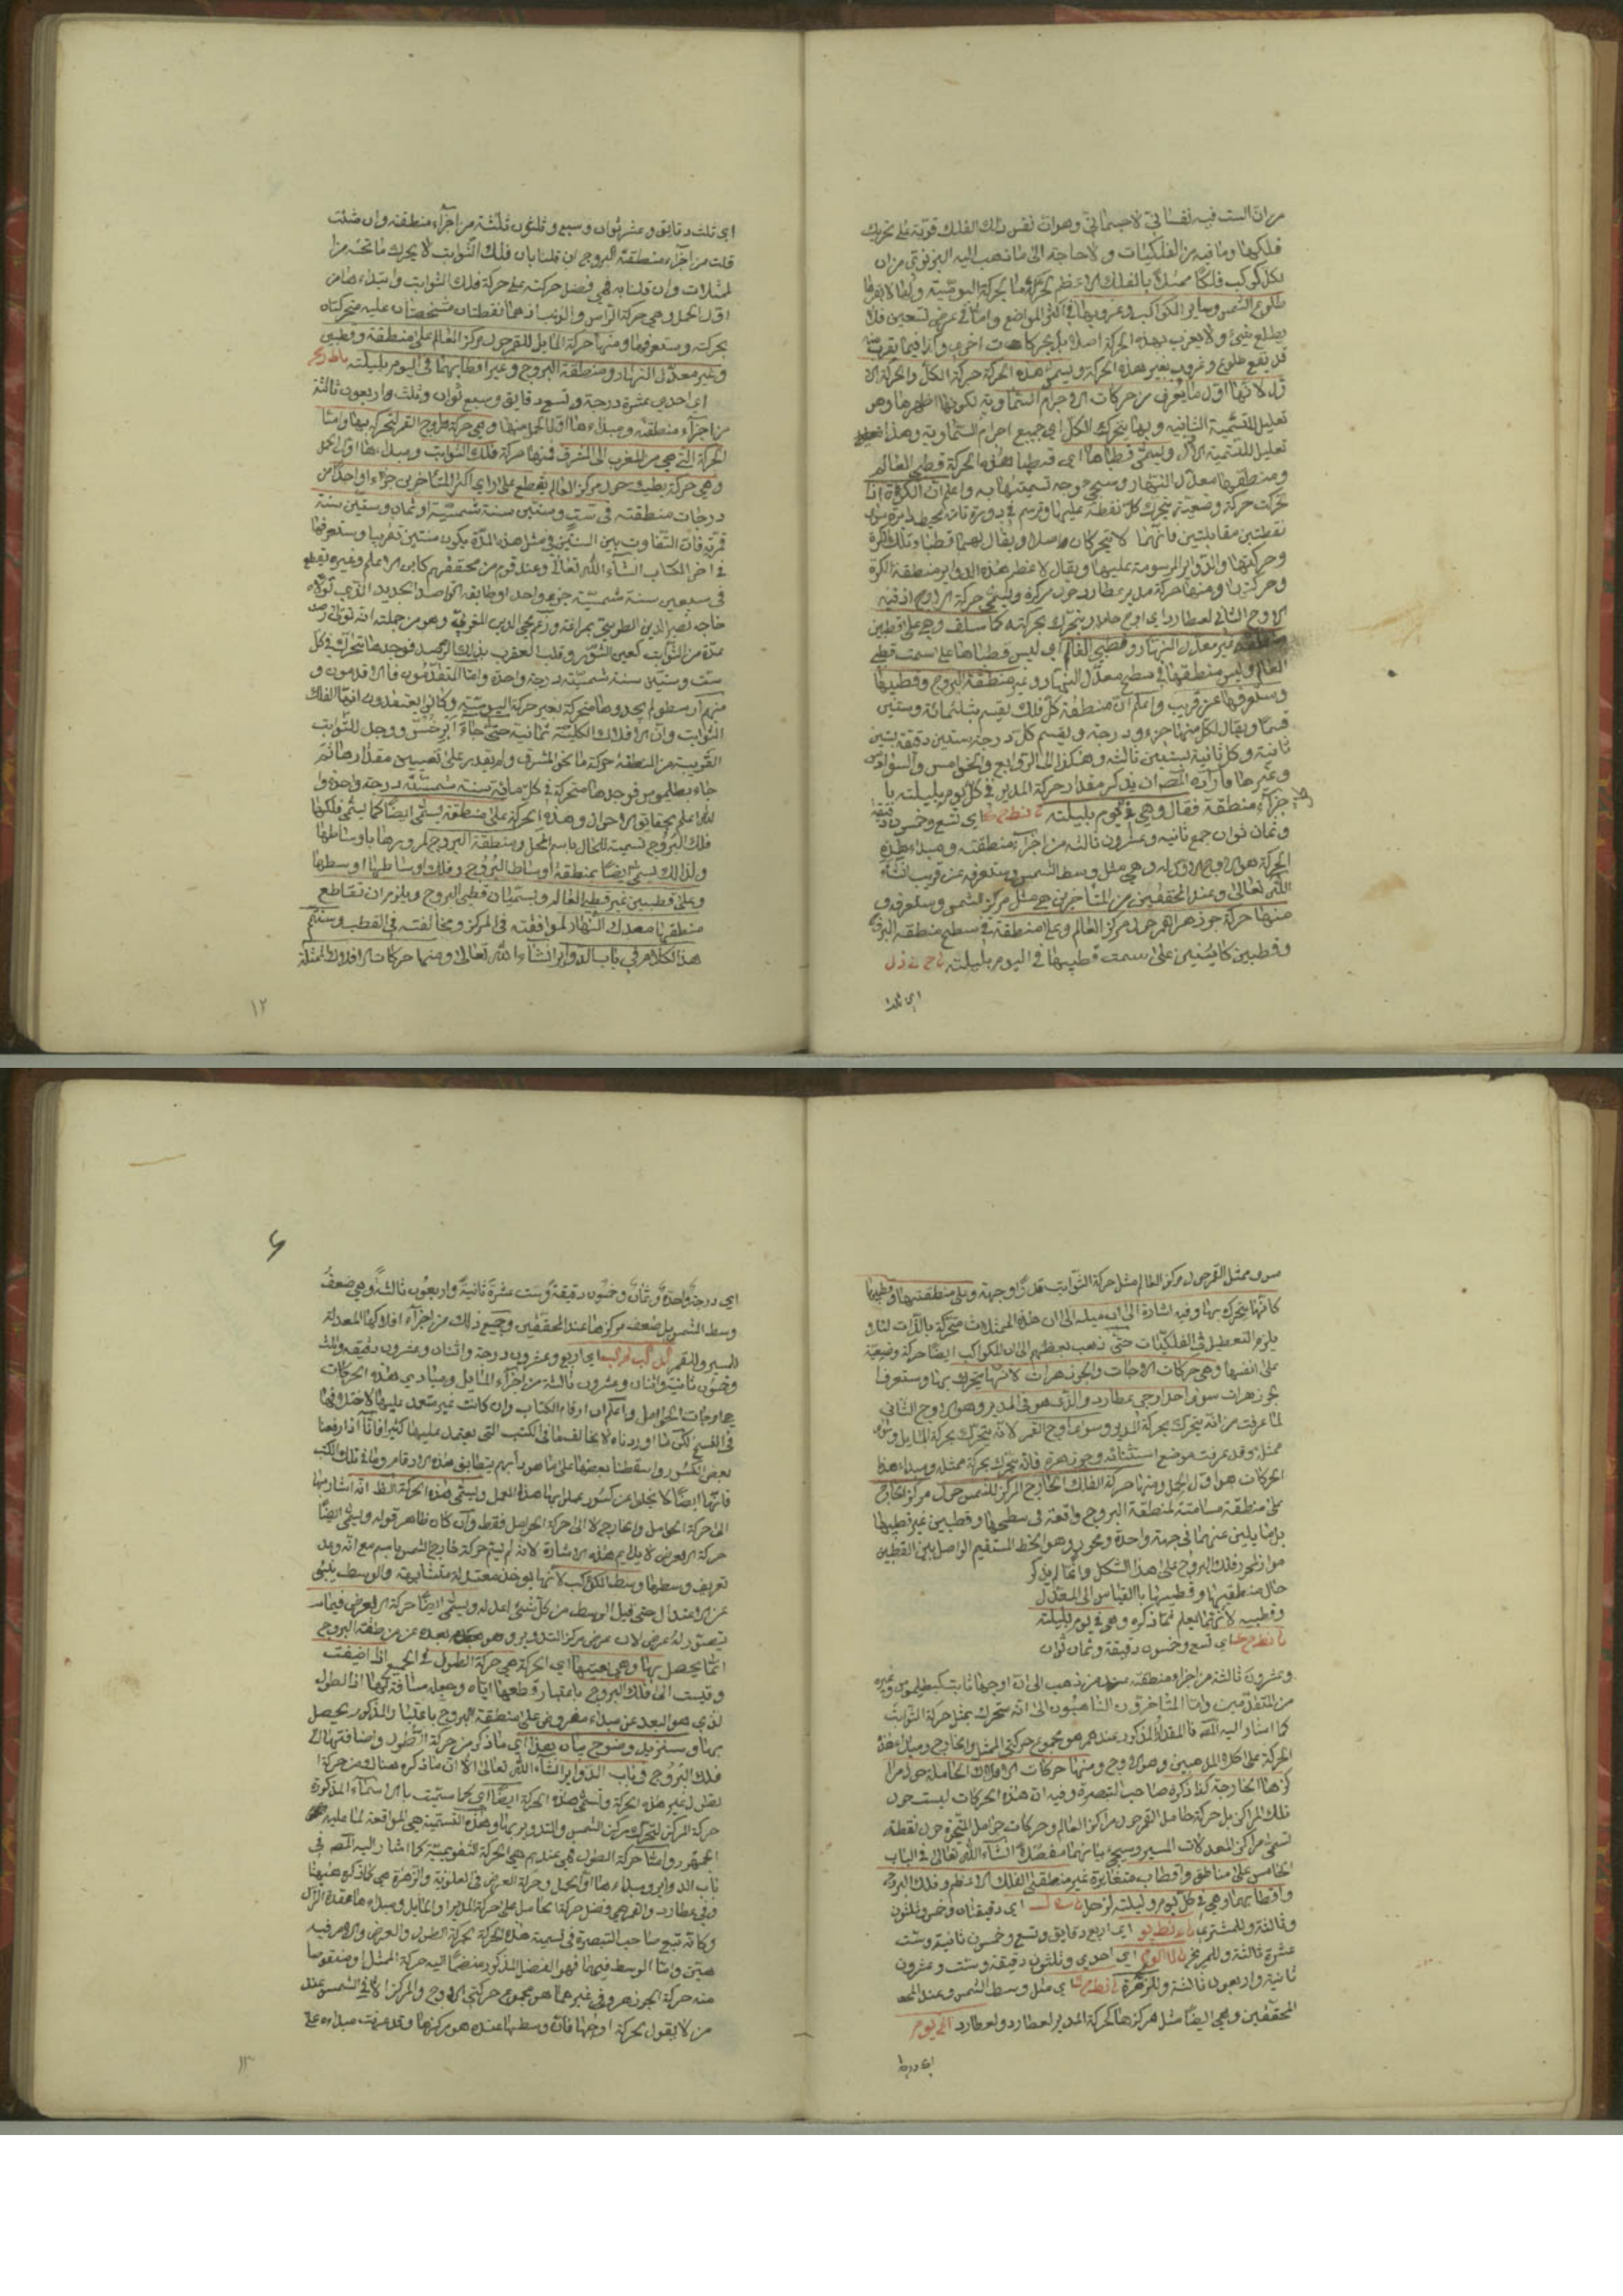 من ان السبب فيه نفساني لا جسماني وهو ان نفس ذلك الفلك قوية على تحريك
فلكها وما فيه من الفلكيات ولا حاجة الى ما ذهب اليه البعض من ان
لكل كوكب فلكا ممثلا بالفلك الاعظم يحركه هذه الحركة اليومية وبها
طلوع الشمس وساير الكواكب وغروبها في اكثر المواضع واما في عرض تسعين فلا
يطلع شئ ولا يغرب بهذه الحركة اصلا بل بحركات اخرى واما فيما يقرب منه
قد يقع طلوع وغروب بغير هذه الحركة ويسمى هذه الحركة حركة الكل والحركة الا
ولى لانها اول ما يعرف من حركات الاجرام السماوية لكونها اظهرها وهو
تعليل للتسمية الثانية وبها يتحرك الكل اي جميع اجرام السماوية وهذا
تعليل للتسمية الاولى ويسمى قطباها اي قطبا هذه الحركة قطبي العالم
ومنطقتها معدل النهار وسيجئ وجه تسميتها به واعلم ان الكرة اذا
تحركت حركة وضعية يتحرك كل نقطة عليها وترسم في دورة تامة محيط دايرة سوى
نقطتين متقابلتين فانهما لا يتحركان اصلا ويقال لهما قطبا تلك الكرة
وحركتها والدواير المرسومة عليها ويقال لاعظم هذه الدواير منطقة الكرة
وحركتها ومنها حركة مدير عطارد حول مركزه ويسمى حركة الاوج اذ فيه
الاوج الثاني لعطارد اي اوج حامله ويتحرك بحركته كما سلف وهي على قطبين
غير معدل النهار وقطبي العالم اي ليس قطباها على سمت قطبي
العالم وليس منطقتها في سطح معدل النهار وغير منطقة البروج وقطبيها
وستعرفها عن قريب واعلم ان منطقة كل فلك يقسم بثلثمائة وستين
قسما ويقال لكل منها جزء ودرجة ويقسم كل درجة بستين دقيقة بستين
ثانية وكل ثانية بستين ثالثة وهكذا الى الروابع والخوامس والسوادس
وغيرها فاراد المص ان يذكر مقدار حركة المدير في كل يوم بليلته با
جزاء منطقة فقال وهي في اليوم بليلته اي تسع وخمسون دقيقة
وثمان ثوان جمع ثانية وعشرون ثالثة من اجزاء منطقته ومبداء هذه
الحركة هو الاوج وهي مثل وسط الشمس وستعرفه عن قريب انشاء
الله تعالى وعند المحققين من المتاخرين هي مثل مركز الشمس وستعرفه و
منها حركة جوزهر القمر حول مركز العالم وعلى منطقة في سطح منطقة البروج
وقطبين كاينين على سمت قطبيها في اليوم بليلته
اي ثلث
اي ثلث دقايق وعشر ثوان وسبع وثلثون ثالثة من اجزاء منطقته وان شئت
قلت من اجزاء منطقة البروج ان قلنا بان فلك الثوابت لا يحرك ما تحته من ا
لممثلات وان قلنا به فهي فضل حركته على حركة فلك الثوابت وابتداء ها من
اول الحمل وهي حركة الراس والذنب اذ هما نقطتان مشخصتان عليه متحركتان
بحركته وستعرفهما ومنها حركة المايل للقمر حول مركز العالم على منطقة وقطبين
وغير معدل النهار ومنطقة البروج وغير اقطابهما في اليوم بليلته
اي احدي عشرة درجة وتسع دقايق وسبع ثوان وثلث واربعون ثالثة
من اجزاء منطقته ومبداء ها اول الحمل منها وهي حركة اوج القمر لتحركه بها واما
الحركة التي هي من المغرب الى المشرق فمنها حركة فلك الثوابت ومبداءها اول الحمل
وهي حركة بطيئة حول مركز العالم يقطع على راي اكثر المتاخرين جزءا واحدا من
درجات منطقته في ست وستين سنة شمسية او ثمان وستين سنة
قمرية فان التفاوت بين السنين في مثل هذه المدة يكون سنتين تقريبا وستعرفها
في اخر الكتاب انشاء الله تعالى وعند قوم من محققيهم كابن الاعلم وغيره يقطع
في سبعين سنة شمسية جزء واحدا وطابقه الرصد الجديد الذي تولاه
خاجه نصير الدين الطوسي بمراغة وزعم محي الدين المغربي وهو من جملته انه تولى رصد
عدة من الثوابت كعين الثور وقلب العقرب بذلك الرصد فوجدها تتحرك في كل
ست وستين سنة شمسية درجة واحدة واما المتقدمون فالاقدمون و
منهم ارسطو لم يجدوها متحركة بغير حركة اليومية وكانوا يعتقدون انها الفلك
الثوابت وان الافلاك الكلية ثمانية حتى جاء ابرخس ووجد للثوابت
القريبة من المنطقة حركة ما نحو المشرق ولم يقدر على تعيين مقدارها ثم
جاء بطلميوس فوجدها متحركة في كل مائة سنة شمسية درجة واحدة وا
لله اعلم بحقايق الاحوال وهذه الحركة على منطقة يسمى ايضا كما يسمى فلكها
فلك البروج تسمية للحال باسم المحل ومنطقة البروج لمرورها باوساطها
ولذلك يسمى ايضا بمنطقة اوساط البروج وفلك اوساطها اوسطها
وعلى قطبين غير قطبي العالم ويسميان قطبي البروج ويلزم ان تقاطع
منطقتها معدل النهار لموافقته في المركز ومخالفته في القطب وستعلم
هذا الكلام في باب الدواير انشاء الله تعالى ومنها حركات الافلاك الممثلة
١٢
سوى ممثل القمر حول مركز العالم مثل حركة الثوابت قدرا وجهة وعلى منطقتها وقطبيها
كانها يتحرك بها وفيه اشارة الى ان ميله الى ان هذه الممثلات متحركة بالذات لئلا
يلزم التعطيل في الفلكيات حتى ذهب بعضهم الى ان للكواكب ايضا حركة وضعية
على انفسها وهي حركات الاوجات والجوزهرات لانها يتحرك بها وستعرف
جوزهرات سوى احد اوجي عطارد والذي هو في المدير وهو الاوج الثاني
لما عرفت من انه يتحرك بحركة المدير وسوى اوج القمر لانه يتحرك بحركة المايل وسوى
ممثله وقد عرفت موضع استثنائه وجوزهره فانه يتحرك بحركة ممثله ومبداء هذه
الحركات هو اول الحمل ومنها حركة الفلك الخارج المركز للشمس حول مركز الخارج
على منطقة مسامتة لمنطقة البروج واقعة في سطحها وقطبين غير قطبيها
بل مايلين عنهما في جهة واحدة ومحور وهو الخط المستقيم الواصل بين القطبين
مواز لمحور فلك البروج على هذا الشكل وانما لم يذكر
حال منطقتها وقطبيها بالقياس الى المعدل
وقطبيه لانهما يعلم مما ذكره وهي في يوم بليلته
اي تسع وخمسون دقيقة وثمان ثوان
وعشرون ثالثة من اجزاء منطقته عند من ذهب الى ان اوجها ثابت كبطلميوس وغيره
من المتقدمين واما المتاخرون الذاهبون الى انه متحرك بمثل حركة الثوابت
كما اشار اليه المص فالمقدار المذكور عندهم هو مجموع حركتي الممثل والخارج ومبداء هذه
الحركة على كلا المذهبين وهو الاوج ومنها حركات الافلاك الحاملة حول مرا
كزها الخارجة كذا ذكره صاحب التبصرة وفيه ان هذه الحركات ليست حول
تلك المراكز بل حركة حامل القمر حول مراكز العالم وحركات حوامل المتحيرة حول نقطة
تسمى مراكز المعدلات المسير وسيجئ بيانها مفصلا انشاء الله تعالى في الباب
الخامس على مناطق واقطاب متغايرة غير منطقتي الفلك الاعظم وفلك البروج
واقطابهما وهي في كل يوم وليلته لزحل اي دقيقتان وخمس وثلثون
وثالثة وللمشتري اي اربع دقايق وتسع وخمسون ثانية وست
عشرة ثالثة وللمريخ اي احدي وثلثون دقيقة وست وعشرون
ثانية واربعون ثالثة وللزهرة اي مثل وسط الشمس وعند المحـ
المحققين وهي ايضا مثل مركزها كحركة المدير لعطارد ولعطارد
اي درجة
اي درجة واحدة وثمان وخمسون دقيقة وست عشرة ثانية واربعون ثالثة وهي ضعف
وسط الشمس بل ضعف مركزها عند المحققين وجميع ذلك من اجزاء افلاكها المعدلة
للمسير وللقمر اي اربع وعشرون درجة واثنان وعشرون دقيقة وثلث
وخمسون ثانية واثنان وعشرون ثالثة من اجزاء المايل ومبادي هذه الحركات
هي اوجات الحوامل واعلم ان ارقام الكتاب وان كانت غير معتمد عليها لاختلافها
في النسخ لكن ما اوردناه لا يخالف ما في الكتب التي يعتمد عليها كثيرا فانا اذا رفعنا
بعض الكسور واسقطنا بعضها على ما هو دأبهم يتطابق هذه الارقام وما في تلك الكتب
فانها ايضا لا يخلوا عن كسور عملوا بها هذا العمل ويسمى هذه الحركة الظ انه اشار بها
الى حركة الحامل والخارج لا الى حركة الحوامل فقط وان كان ظاهر قوله ويسمى ايضا
حركة العرض لا يلايم هذه الاشارة لانه لم يسم حركة خارج الشمس باسم مع انه وعد
تعريف وسطها وسط الكوكب لانها يوخذ معتدلة متشابهة والوسط ينبئ
عن الاعتدال حتى قيل الوسط من كل شئ اعدله ويسمى ايضا حركة العرض فيما
يتصور له عرض لان عرض مركز التدوير وهو بعده عن منطقة البروج
انما يحصل بها وهي بعينها اي الحركة هي حركة الطول في الجميع اذا اضيفت
وقيست الى فلك البروج باعتبار قطعها اياه وجعل مسافة لها اذ الطول
لذي هو البعد عن مبداء مفروض على منطقة البروج باعتبار المذكور يحصل
بها وسنزيد وضوح بيان بعد اي ما ذكر من حركة الطول واضافتها الى
فلك البروج في باب الدواير انشاء الله تعالى الا ان ما ذكره هناك من حركة ا
لطول غير هذه الحركة وتسمى هذه الحركة ايضا اي كما سميت بالاسماء المذكورة
حركة المركز لتحرك مركز الشمس والتدوير بها وهذه التسمية هي الموافقة لما عليه
الجمهور واما حركة الطول فهي عندهم هي الحركة التقويمية كما اشار اليه المص في
باب الدواير ومبداءها اول الحمل وحركة العرض في العلوية والزهرة هي ما ذكره ههنا
وفي عطارد والقمر هي فضل حركة الحامل على حركة المدير او المايل ومبداءها عقدة الراس
وكانه تبع صاحب التبصرة في تسمية هذه الحركة بحركة الطول والعرض والامر فيه
هين واما الوسط فيهما فهو الفضل المذكور منضما اليه حركة الممثل او منقوصا
منه حركة الجوزهر وفي غيرهما هو مجموع حركتي الاوج والمركز الا في الشمس عند
من لا يقول بحركة اوجها فان وسطها عنده هو مركزها وقد عرفت مبداءه على
١٣